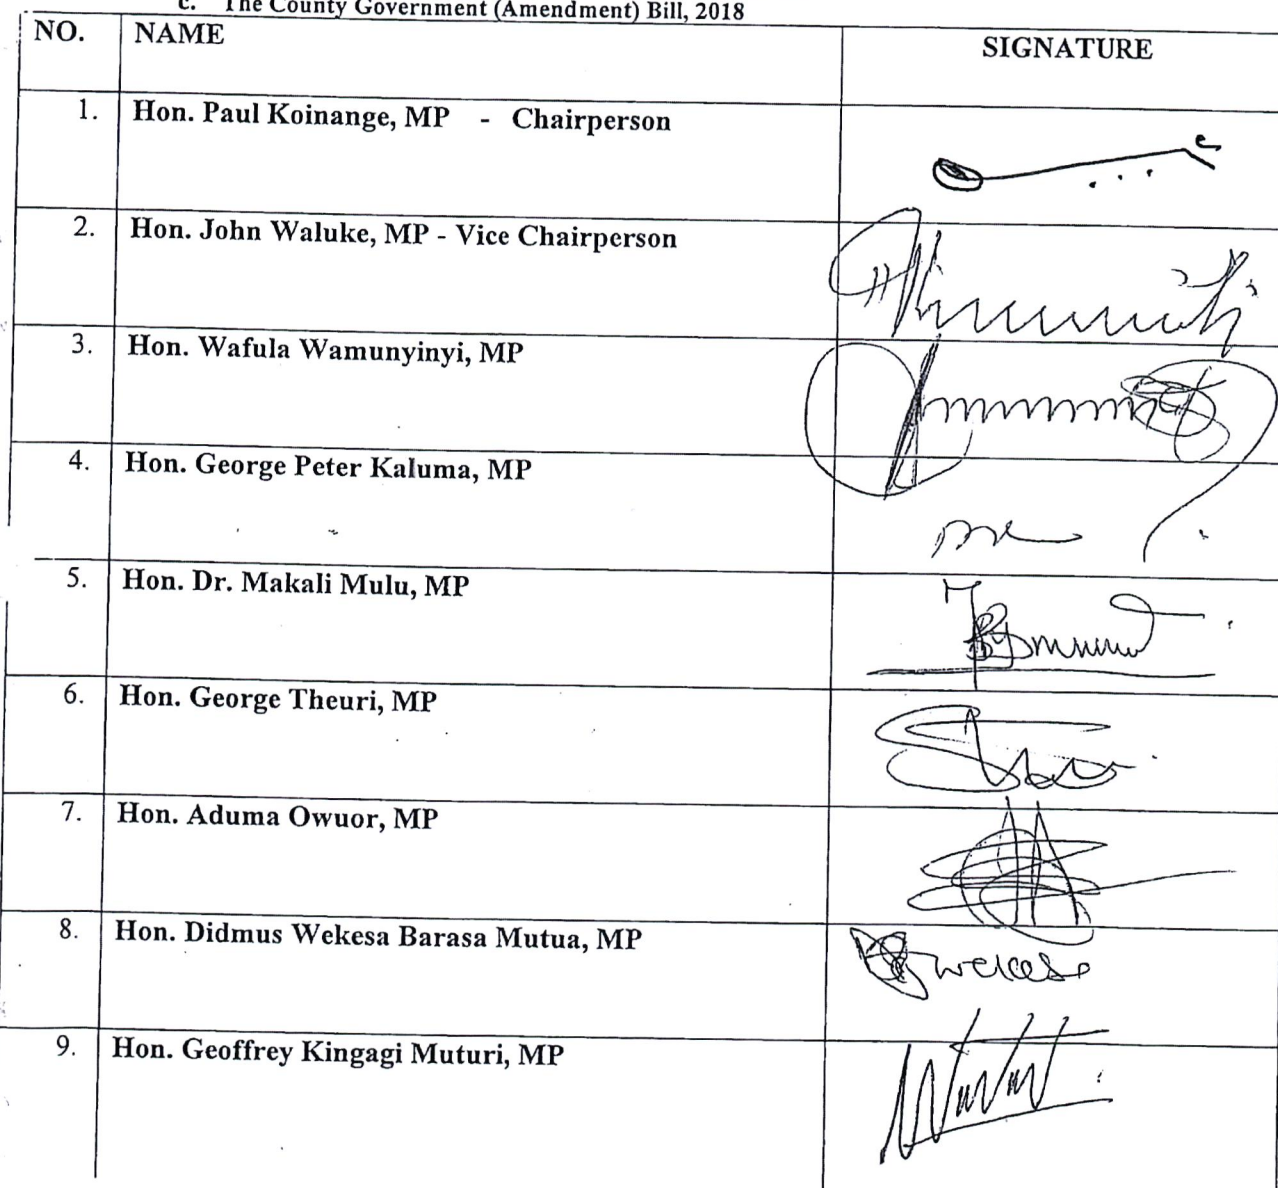 c. The County Government (Amendment) Bill, 2018
NO. NAME SIGNATURE
1. Hon. Paul Koinange, MP - Chairperson
2. Hon. John Waluke, MP - Vice Chairperson
3. Hon. Wafula Wamunyinyi, MP
4. Hon. George Peter Kaluma, MP
5. Hon. Dr. Makali Mulu, MP
6. Hon. George Theuri, MP
7. Hon. Aduma Owuor, MP
8. Hon. Didmus Wekesa Barasa Mutua, MP wekesa
9. Hon. Geoffrey Kingagi Muturi, MP